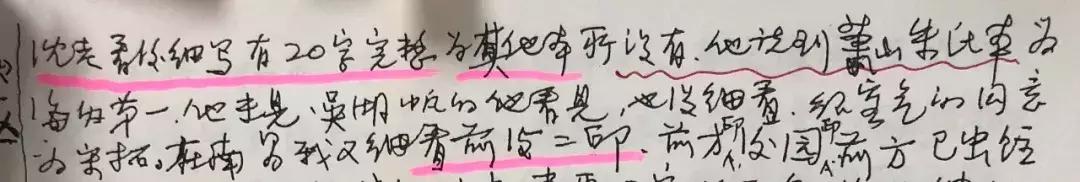 沈老看后细写有20字完整为其他本所没有.他说到萧山朱氏本为
海内第一.他未见.吴湖帆的他看见,也没细看.纸墨气的内
为宋拓.在南 我又细看前后二印.前方后圆前方已出